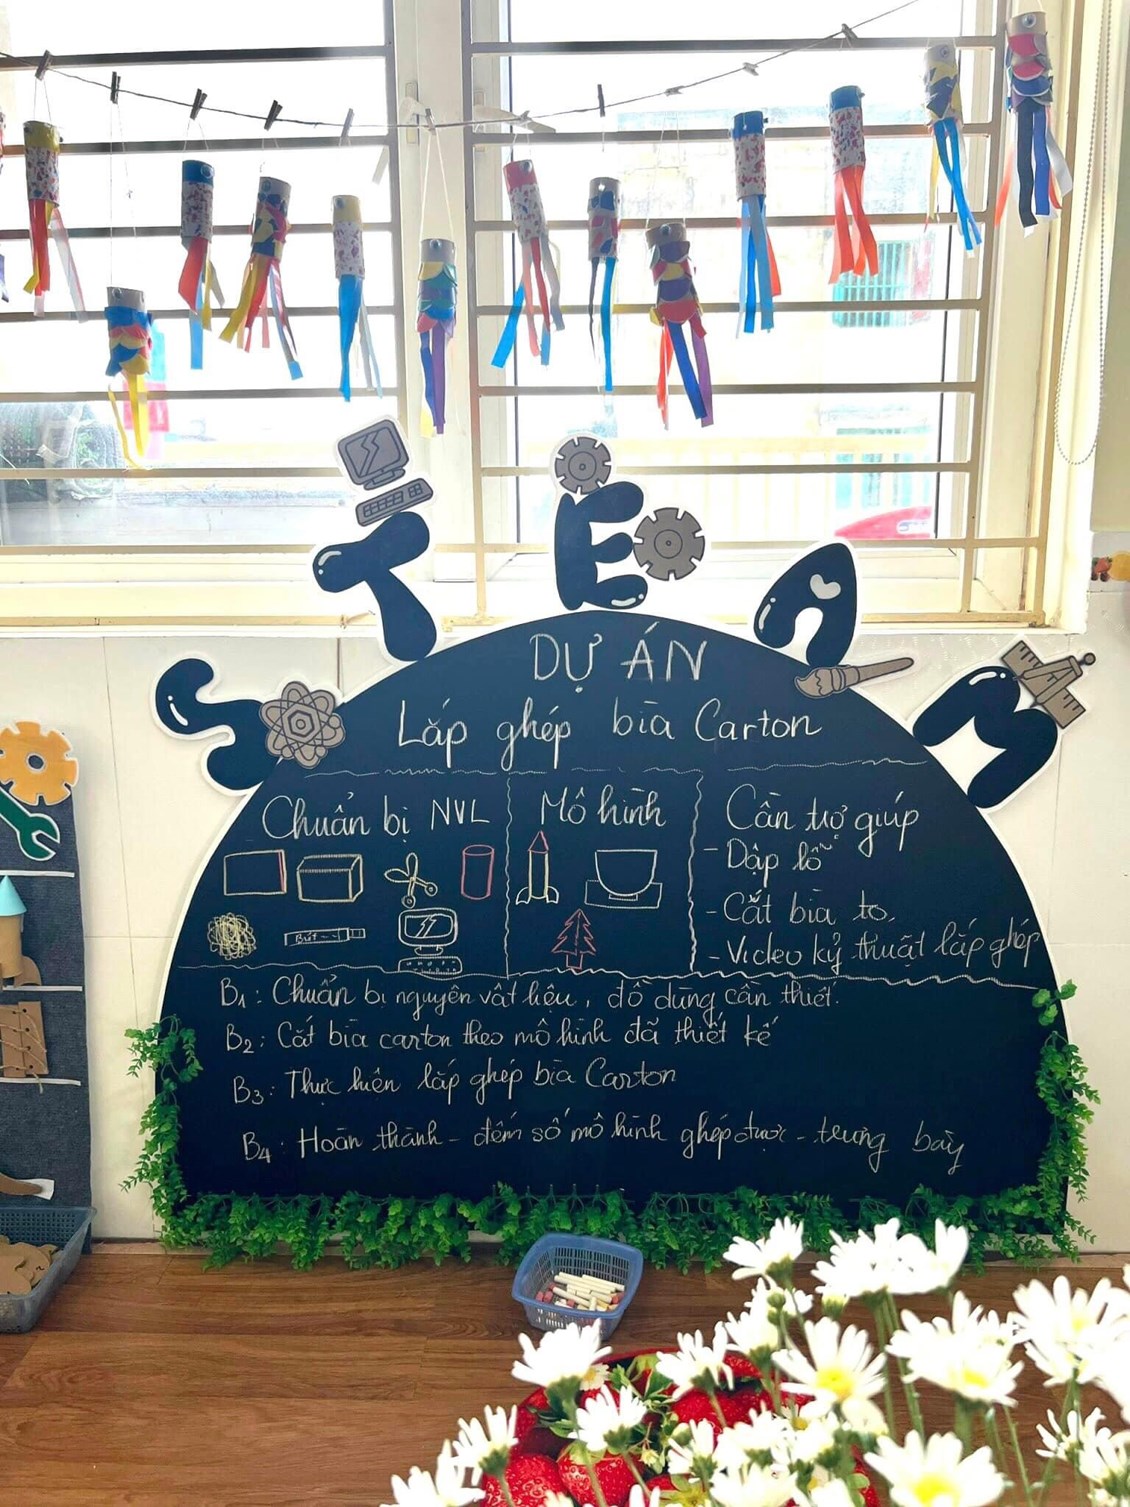 STEAM
DỰ ÁN
Lắp ghép bìa Carton
Chuẩn bị NVL
Mô hình
Cần trợ giúp
- Dập lỗ
- Cắt bìa to.
- Video kỹ thuật lắp ghép
B1: Chuẩn bị nguyên vật liệu, đồ dùng cần thiết.
B2: Cắt bìa carton theo mô hình đã thiết kế
B3: Thực hiện lắp ghép bìa Carton
B4: Hoàn thành - đếm số mô hình ghép được - trưng bày